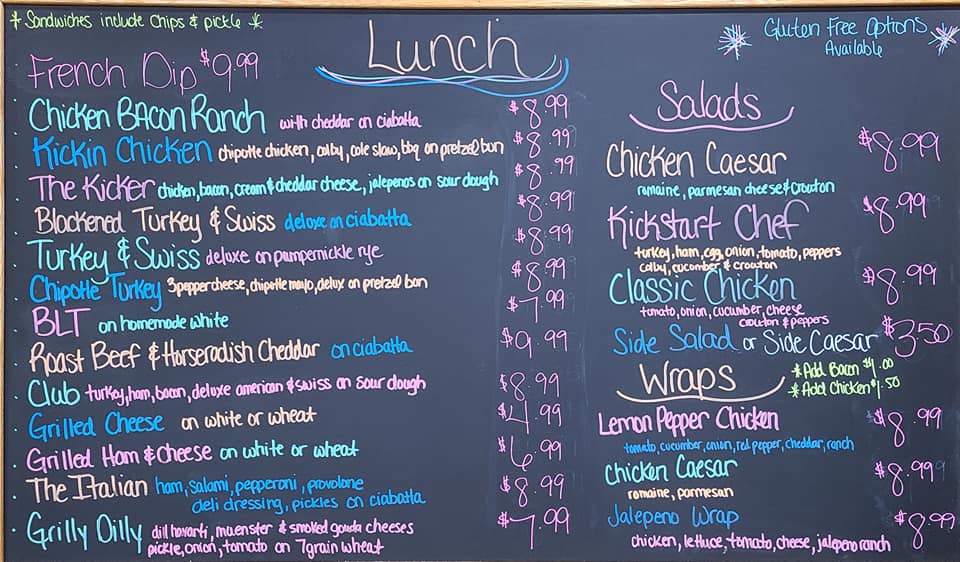 * Sandwiches include Chips & pickle *
Lunch
Gluten Free Options
Available
French Dip $9.99
Chicken Bacon Ranch with cheddar on ciabatta $8.99
Kickin Chicken chipotle chicken, colby, cole slaw, bbq on pretzel bun $8.99
The Kicker chicken, bacon, cream & cheddar cheese, jalepenos on sour dough $8.99
Blackened Turkey & Swiss deluxe on ciabatta $8.99
Turkey & Swiss deluxe on pumpernickle rye $8.99
Chipotle Turkey 3 pepper cheese, chipotle mayo, delux on pretzel bun $8.99
BLT on homemade white $7.99
Roast Beef & Horseradish Cheddar on ciabatta $9.99
Club turkey, ham, bacon, deluxe american & swiss on sour dough $8.99
Grilled Cheese on white or wheat $4.99
Grilled Ham & Cheese on white or wheat $6.99
The Italian ham, salami, pepperoni, provolone $8.99
deli dressing, pickles on ciabatta
Grilly Dilly dill havarti, muenster & smoked gouda cheeses $7.99
pickle, onion, tomato on 7 grain wheat
Salads
Chicken Caesar $8.99
romaine, parmesan cheese & crouton
Kickstart Chef $8.99
turkey, ham, egg, onion, tomato, peppers
colby, cucumber & crouton
Classic Chicken $8.99
tomato, onion, cucumber, cheese
crouton & peppers
Side Salad or Side Caesar $3.50
Wraps
* Add Bacon $1.00
* Add Chicken $1.50
Lemon Pepper Chicken $8.99
tomato, cucumber, onion, red pepper, cheddar, ranch
Chicken Caesar $8.99
romaine, parmesan
Jalepeno Wrap $8.99
chicken, lettuce, tomato, cheese, jalepeno ranch